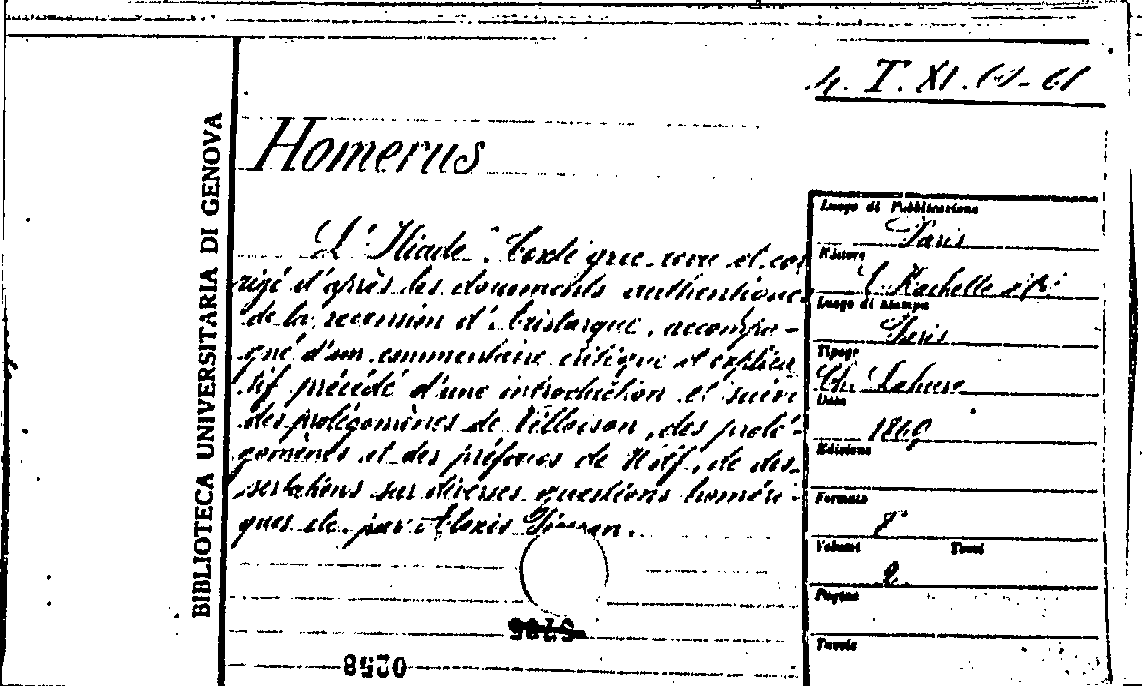 4. T. XI. 60-61
BIBLIOTECA UNIVERSITARIA DI GENOVA
Homerus
L'"Iliade". Texte grec revu et cor
rigé d'après les documents authentiques
de la recension d'Aristarque, accompa-
gné d'un commentaire critique et explica
tif précédé d'une introduction et suivi
des prolégomènes de Villoison, des prolé-
gomènes et des préfaces de Wolf, de dis-
sertations sur diverses questions homéri-
ques etc. par Alexis Pierron.
Luogo di Pubblicazione
Paris
Editore
L. Hachette et C.
Luogo di stampa
Paris
Tipogr
Ch. Lahure
Data
1869
Edizione
Formato
8°
Volumi Tomi
2
Pagine
Tavole
0258